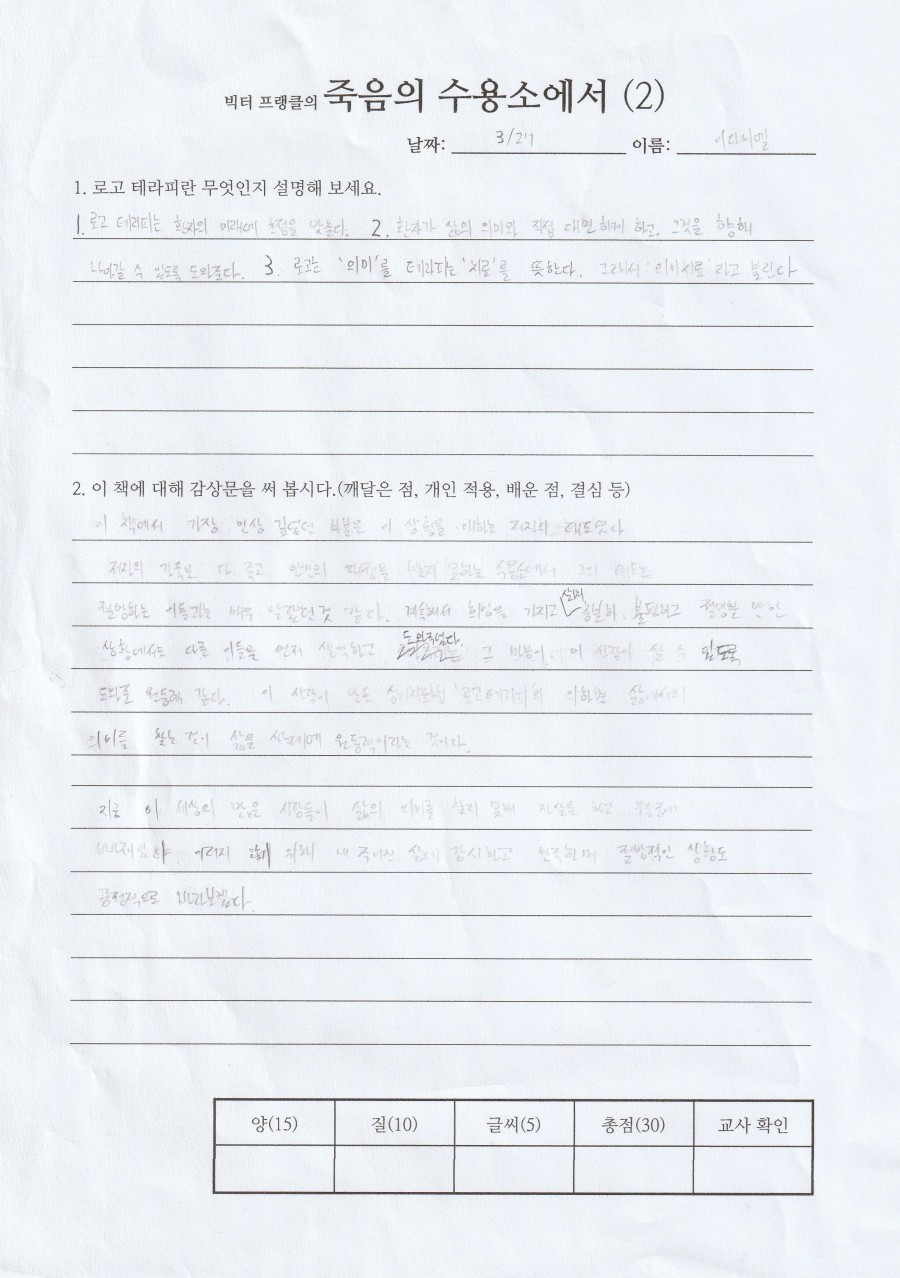 빅터 프랭클의 죽음의 수용소에서 (2)
날짜: 3/27 이름: 이다니엘
1. 로고 테라피란 무엇인지 설명해 보세요.
1. 로고 테라피는 환자의 미래에 초점을 맞춘다. 2. 환자가 삶의 의미와 직접 대면하게 하고, 그것을 향해
나아갈 수 있도록 도와준다. 3. 로고는 '의미'를 테라피는 '치료'를 뜻한다. 그래서 '의미치료'라고 불린다
2. 이 책에 대해 감상문을 써 봅시다.(깨달은 점, 개인 적용, 배운 점, 결심 등)
이 책에서 가장 인상 깊었던 부분은 이 상황을 대하는 저자의 태도였다
저자의 가족은 다 죽고 인간의 수용소에서 그의
절망하는 이들과는 매우 달랐던 것 같다. 계속해서 희망을 가지고 충분히 불평하고 절망할 만한
상황에서도 다른 이들을 먼저 생각하고 도와주었다. 그 이 살 수 있도록
도와준 원동력 같다. 이 만든 '로고테라피'에 의하면 삶에서의
의미를 찾는 것이 삶을 원동력이라는 것이다.
지금 이 세상의 많은 사람들이 삶의 의미를 찾지 못해 자살을 하고
이러지 않기 위해 내 주어진 삶에 감사하고 만족하며 절망적인 상황도
긍정적으로 바라보겠다.
양(15) 질(10) 글씨(5) 총점(30) 교사 확인